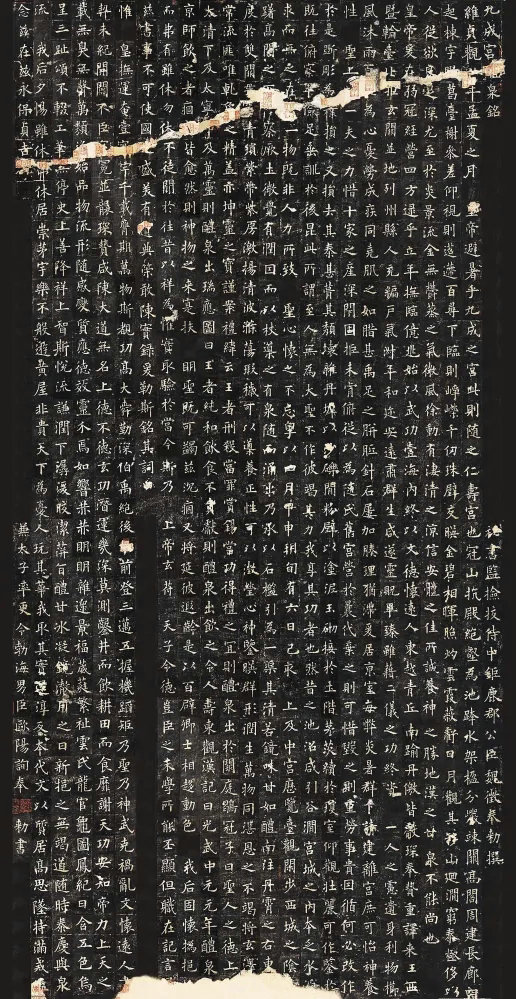 九成宮醴泉銘 秘書監撿挍侍中鉅鹿郡公臣魏徵奉勅撰
維貞觀六年孟夏之月 皇帝避暑乎九成之宮此則隨之仁壽宮也冠山抗殿絕壑為池跨水架楹分巖竦闕高閣周建長廊四
起棟宇膠葛臺榭參差仰視則迢遰百尋下臨則崢嶸千仞珠壁交暎金碧相暉照灼雲霞蔽虧日月觀其移山迴澗窮泰極侈以
人從欲良足深尤至於炎景流金無鬱蒸之氣微風徐動有淒清之涼信安體之佳所誠養神之勝地漢之甘泉不能尚也
皇帝爰在弱冠經營四方逮乎立年撫臨億兆始以武功壹海內終以文德懷遠人東越青丘南踰丹徼皆獻琛奉贄重譯來王西
暨輪臺北拒玄闕並地列州縣人充編戶氣淑年和迩安遠肅群生咸遂靈貺畢臻雖藉二儀之功終資一人之慮遺身利物櫛
風沐雨百姓為心憂勞成疾同堯肌之如腊甚禹足之胼胝針石屢加腠理猶滯爰居京室每弊炎暑群下請建離宮庶可怡神養
性 聖上愛一夫之力惜十家之產深閉固拒未肯俯從以為隨氏舊宮營於曩代棄之則可惜毀之則重勞事貴因循何必改作
於是斲彫為樸損之又損去其泰甚葺其頹壞雜丹墀以沙礫間粉壁以塗泥玉砌接於土階茅茨續於瓊室仰觀壯麗可作鑒於
既往俯察卑儉足垂訓於後昆此所謂至人無為大聖不作彼竭其力我享其功者也然昔之池沼咸引谷澗宮城之內本乏水
求而無之在乎一物既非人力所致 聖心懷之不忘粵以四月甲申朔旬有六日己亥 上及中宮歷覽臺觀閑步西城之陰
躊躇高閣之下俯察厥土微覺有潤因而以杖導之有泉隨而涌出乃承以石檻引為一渠其清若鏡味甘如醴南注丹霄之右東
度於雙闕貫穿青瑣縈帶紫房激揚清波滌蕩瑕穢可以導養正性可以澂瑩心神鑒暎群形潤生萬物同湛恩之不竭將玄澤
常流匪唯乾象之精蓋亦坤靈之寶謹案禮緯云王者刑殺當罪賞錫當功得禮之宜則醴泉出於闕庭鶡冠子曰聖人之德上
太清下及太寧中及萬靈則醴泉出瑞應圖曰王者純和飲食不貢獻則醴泉出飲之令人壽東觀漢記曰光武中元元年醴泉
京師飲之者痼疾皆愈然則神物之來寔扶 明聖既可蠲茲沉痼又將延彼遐齡是以百辟卿士相趨動色 我后固懷撝挹
而弗有雖休勿休不徒聞於往昔以祥為懼實取驗於當今斯乃 上帝玄符 天子令德豈臣之末學所能丕顯但職在記言
茲書事不可使國之盛美有遺典策敢陳實錄爰勒斯銘其詞曰
惟皇撫運奄壹寰宇千載膺期萬物斯覩功高大舜勤深伯禹絕後光前登三邁五握機蹈矩乃聖乃神武克禍亂文懷遠人
契未紀開闢不臣冠冕並襲琛贄咸陳大道無名上德不德玄功潛運幾深莫測鑿井而飲耕田而食靡謝天功安知帝力上天之
載無臭無聲萬類資始品物流形隨感變質應德效靈介焉如響赫赫明明雜遝景福葳蕤繁祉雲氏龍官龜圖鳳紀日含五色烏
呈三趾頌不輟工筆無停史上善降祥上智斯悅流謙潤下潺湲皎潔蓱旨醴甘冰凝鏡澈用之日新挹之無竭道隨時泰慶與泉
流我后夕惕雖休弗休居崇茅宇樂不般遊黃屋非貴天下為憂人玩其華我取其實還淳反本代文以質居高思墜持滿戒溢
念茲在茲永保貞吉 兼太子率更令勃海男臣歐陽詢奉 勅書